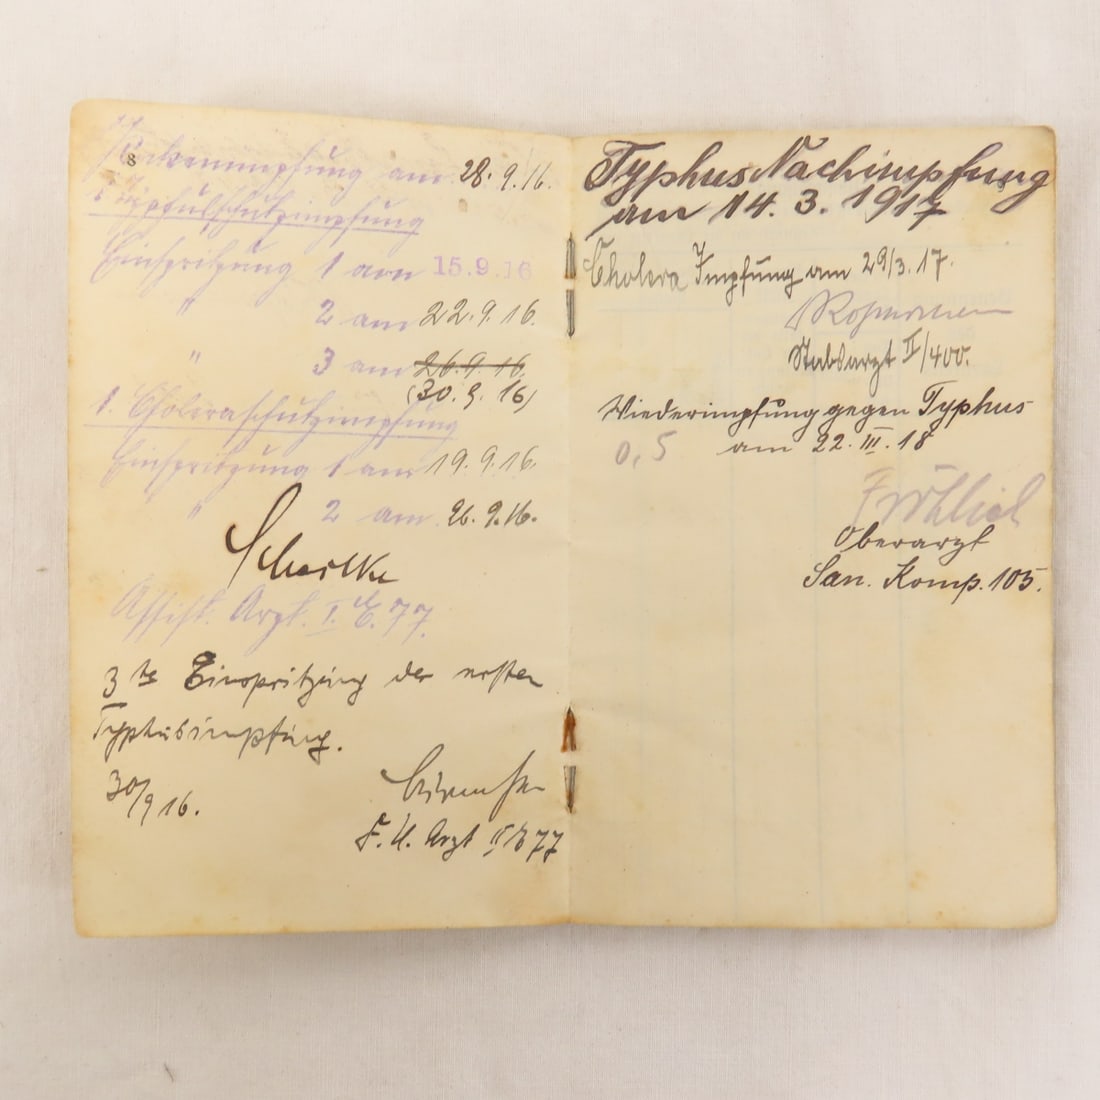 8
Pockenimpfung am 28.9.16.
Typhusschutzimpfung
Einspritzung 1 am 15.9.16
" 2 am 22.9.16.
" 3 am 26.9.16
(30.9.16)
1. Choleraschutzimpfung
Einspritzung 1 am 19.9.16.
" 2 am 26.9.16.
Assist. Arzt. I. E. 77.
3te Einspritzung der ersten
Typhusimpfung.
30/9 16.
F. U. Arzt II E 77
Typhus Nachimpfung
am 14. 3. 1917
Cholera Impfung am 29/3. 17.
Stabsarzt II/400.
Wiederimpfung gegen Typhus
0,5 am 22. III. 18
Fröhlich
Oberarzt
San. Komp. 105.